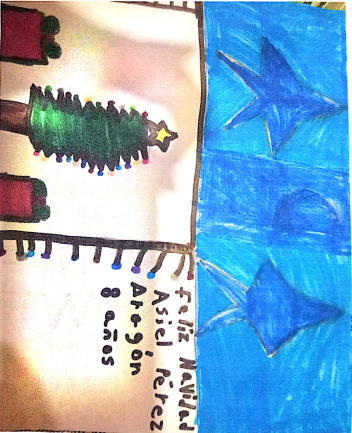 Feliz Navidad
Asiel Pérez
Aragón
8 años